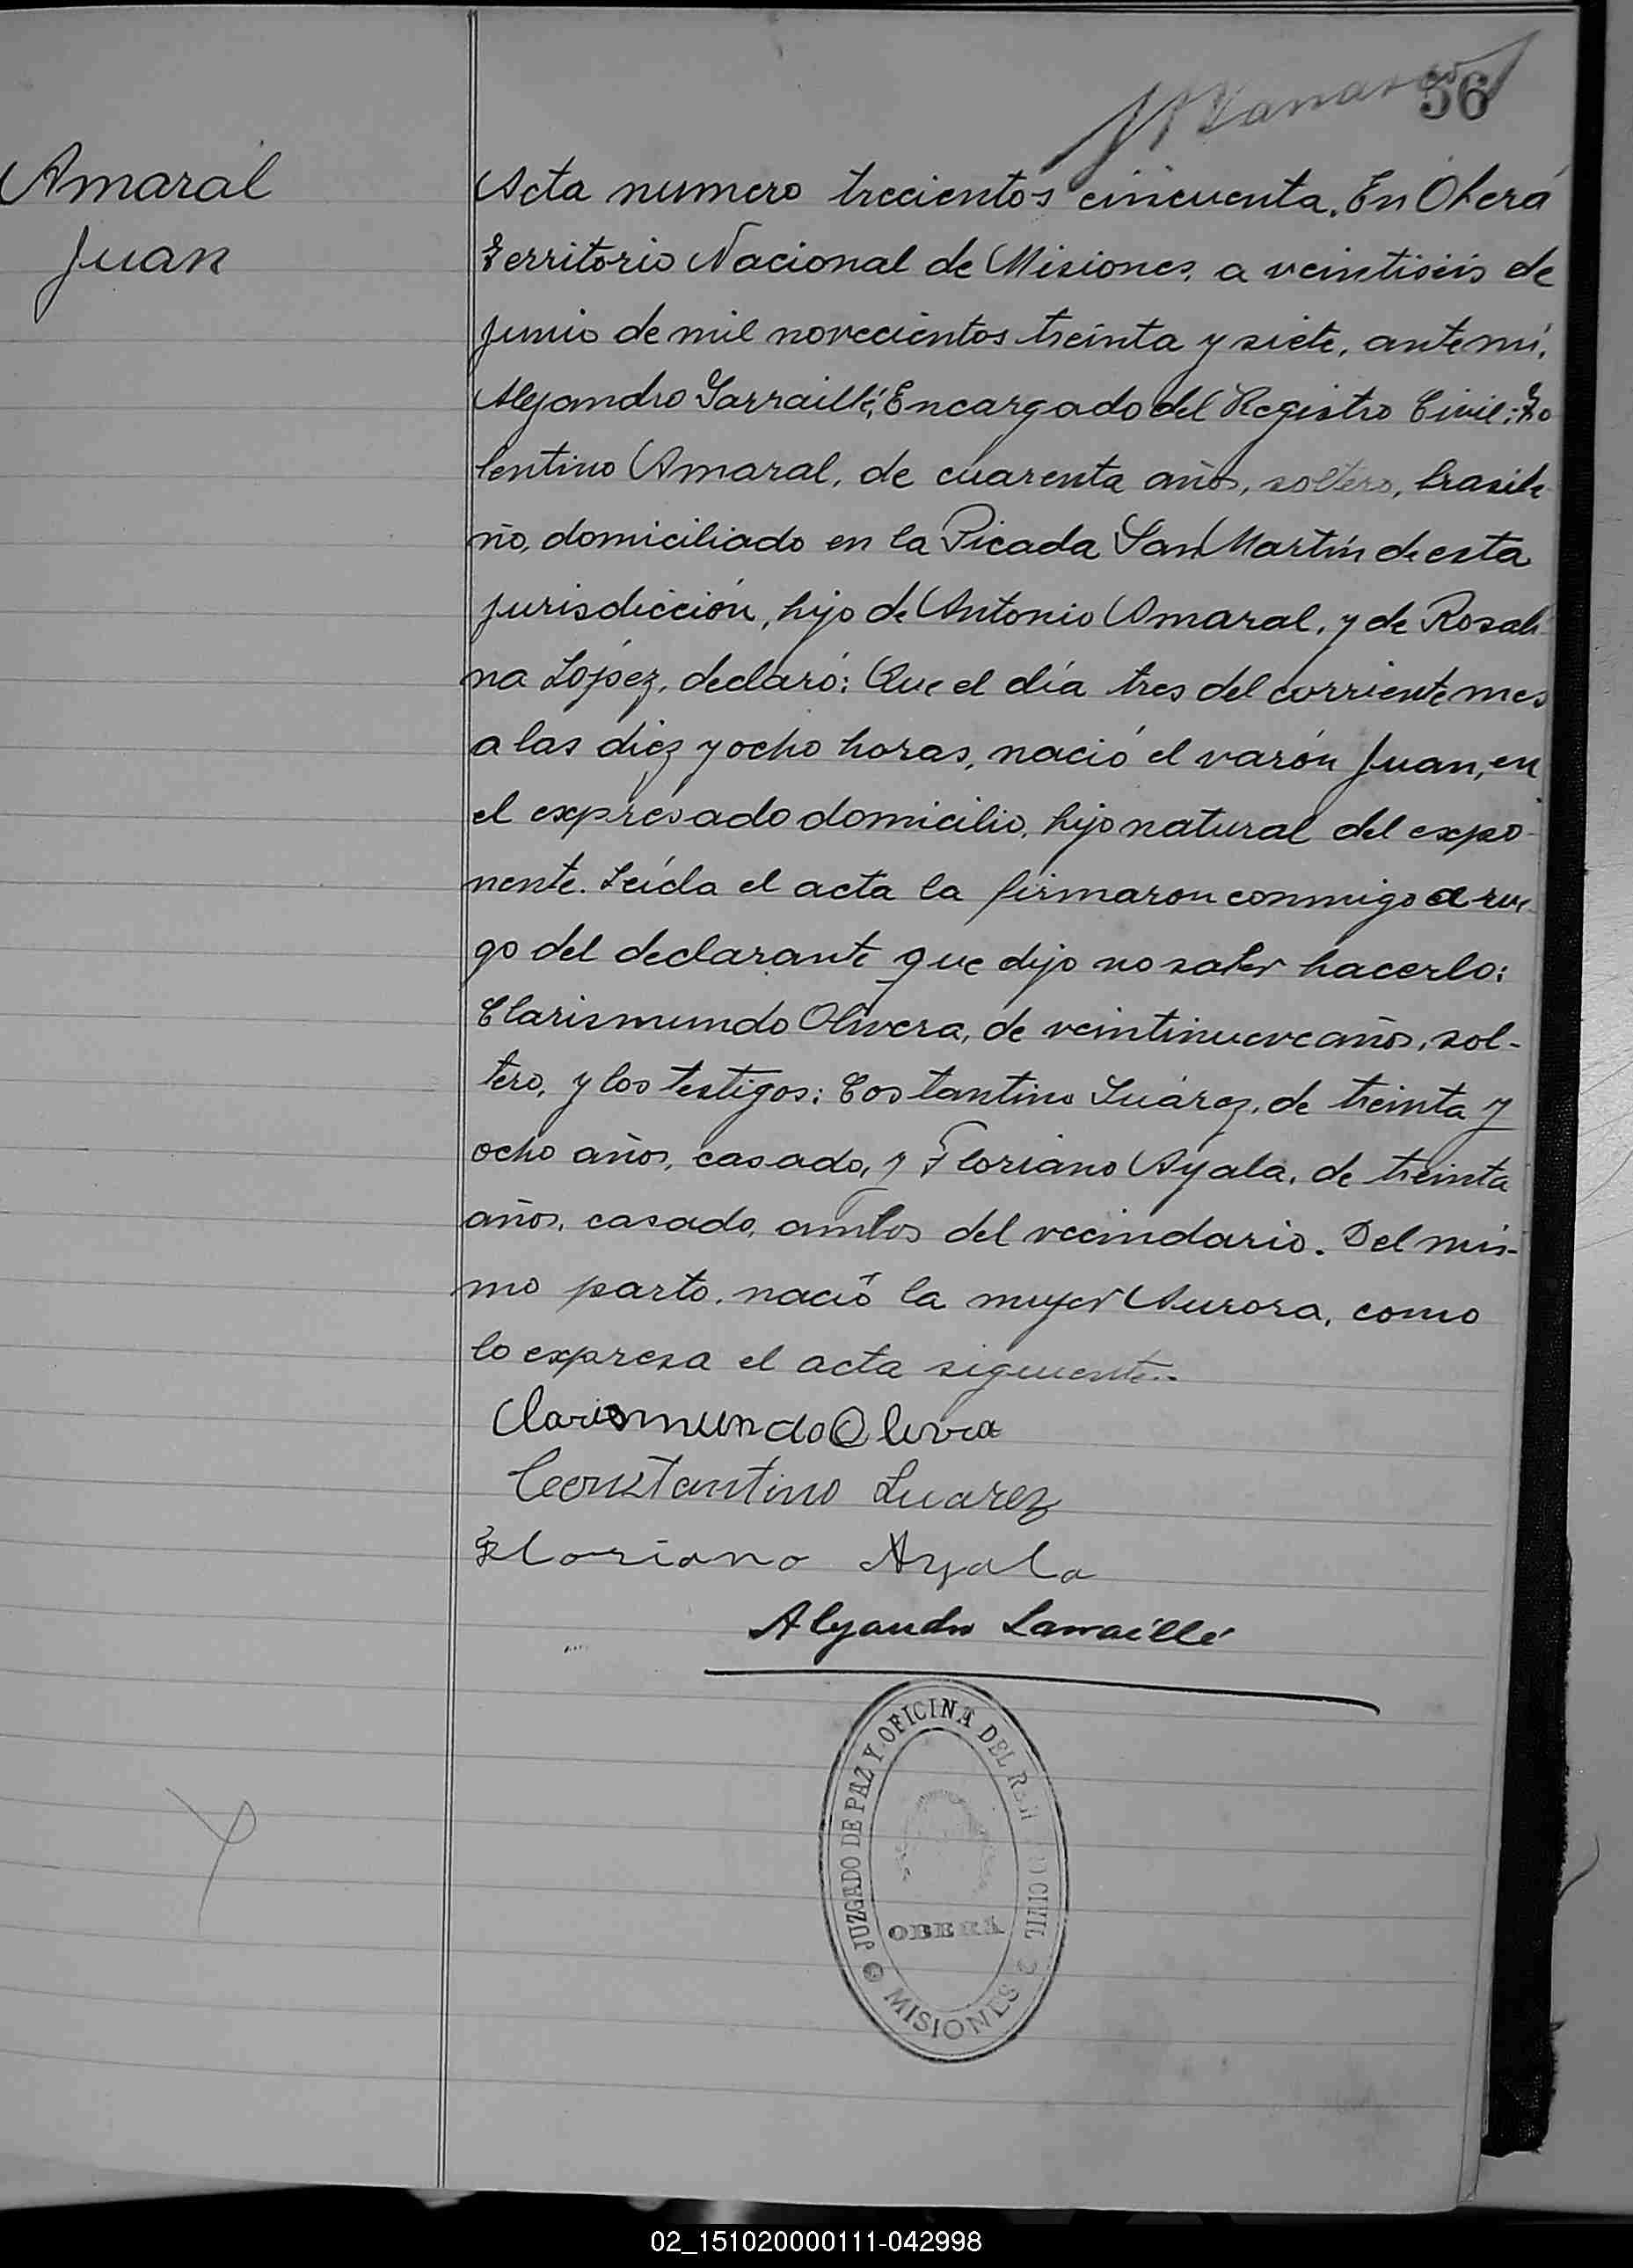 56
Amaral
Juan
Acta numero trecientos cincuenta. En Oberá
Territorio Nacional de Misiones, a veintiseis de
junio de mil novecientos treinta y siete, ante mí,
Alejandro Larraillé, Encargado del Registro Civil: To-
lentino Amaral, de cuarenta años, soltero, brasile-
ño, domiciliado en la Picada San Martín de esta
jurisdicción, hijo de Antonio Amaral, y de Rosali-
na López, declaró: Que el día tres del corriente mes
a las diez y ocho horas, nació el varón Juan, en
el expresado domicilio, hijo natural del expo-
nente. Leída el acta la firmaron conmigo a rue-
go del declarante que dijo no saber hacerlo:
Clarismundo Olivera, de veintinueve años, sol-
tero, y los testigos: Costantino Suárez, de treinta y
ocho años, casado, y Floriano Ayala, de treinta
años, casado, ambos del vecindario. Del mis-
mo parto, nació la mujer Aurora, como
lo expresa el acta siguiente.-
Clarismundo Olivra
Constantino Suarez
Floriano Ayala
Alejandro Larraillé
JUZGADO DE PAZ Y OFICINA DEL CIVIL
OBERÁ
MISIONES
02_151020000111-042998